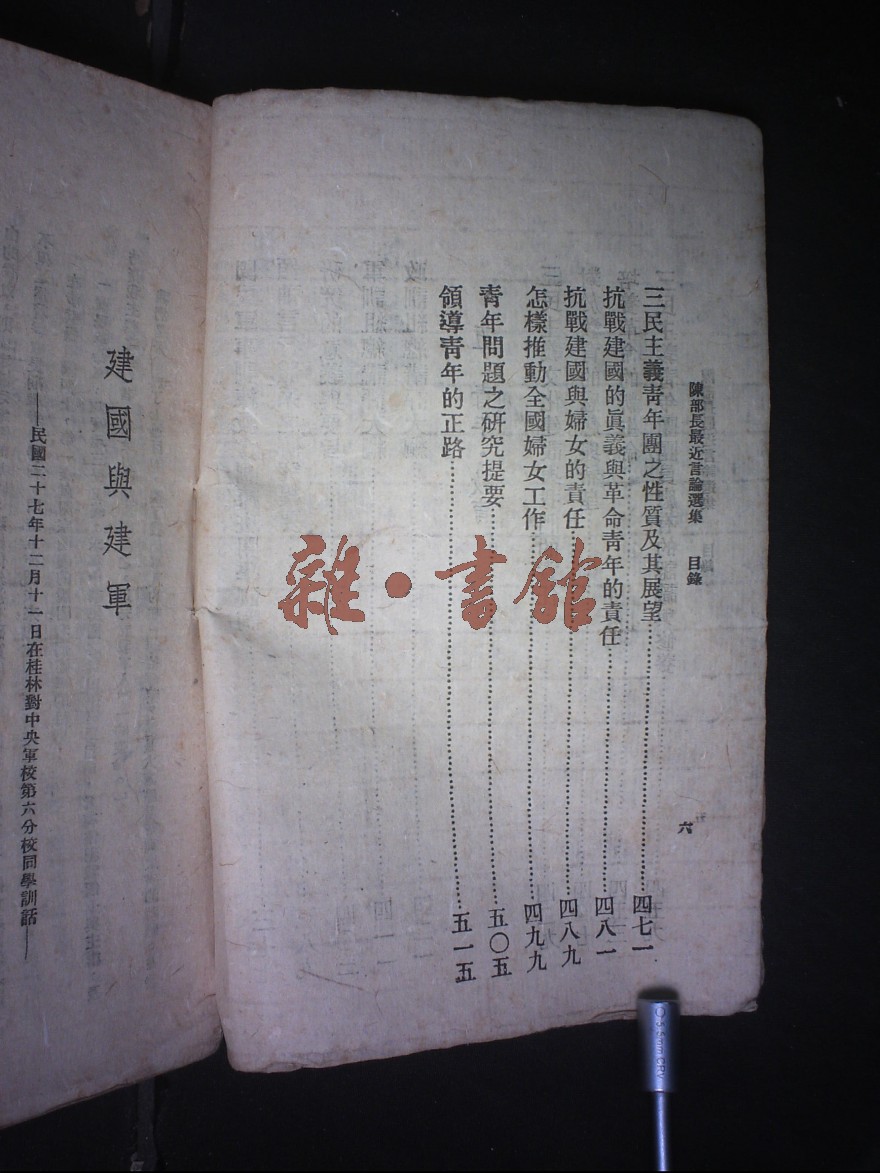 陳部長最近言論選集　目錄
六
三民主義靑年團之性質及其展望……四七一
抗戰建國的眞義與革命靑年的責任……四八一
抗戰建國與婦女的責任……四八九
怎樣推動全國婦女工作……四九九
靑年問題之硏究提要……五〇五
領導靑年的正路……五一五
建國與建軍
——民國二十七年十二月十一日在桂林對中央軍校第六分校同學訓話——
雜·書館